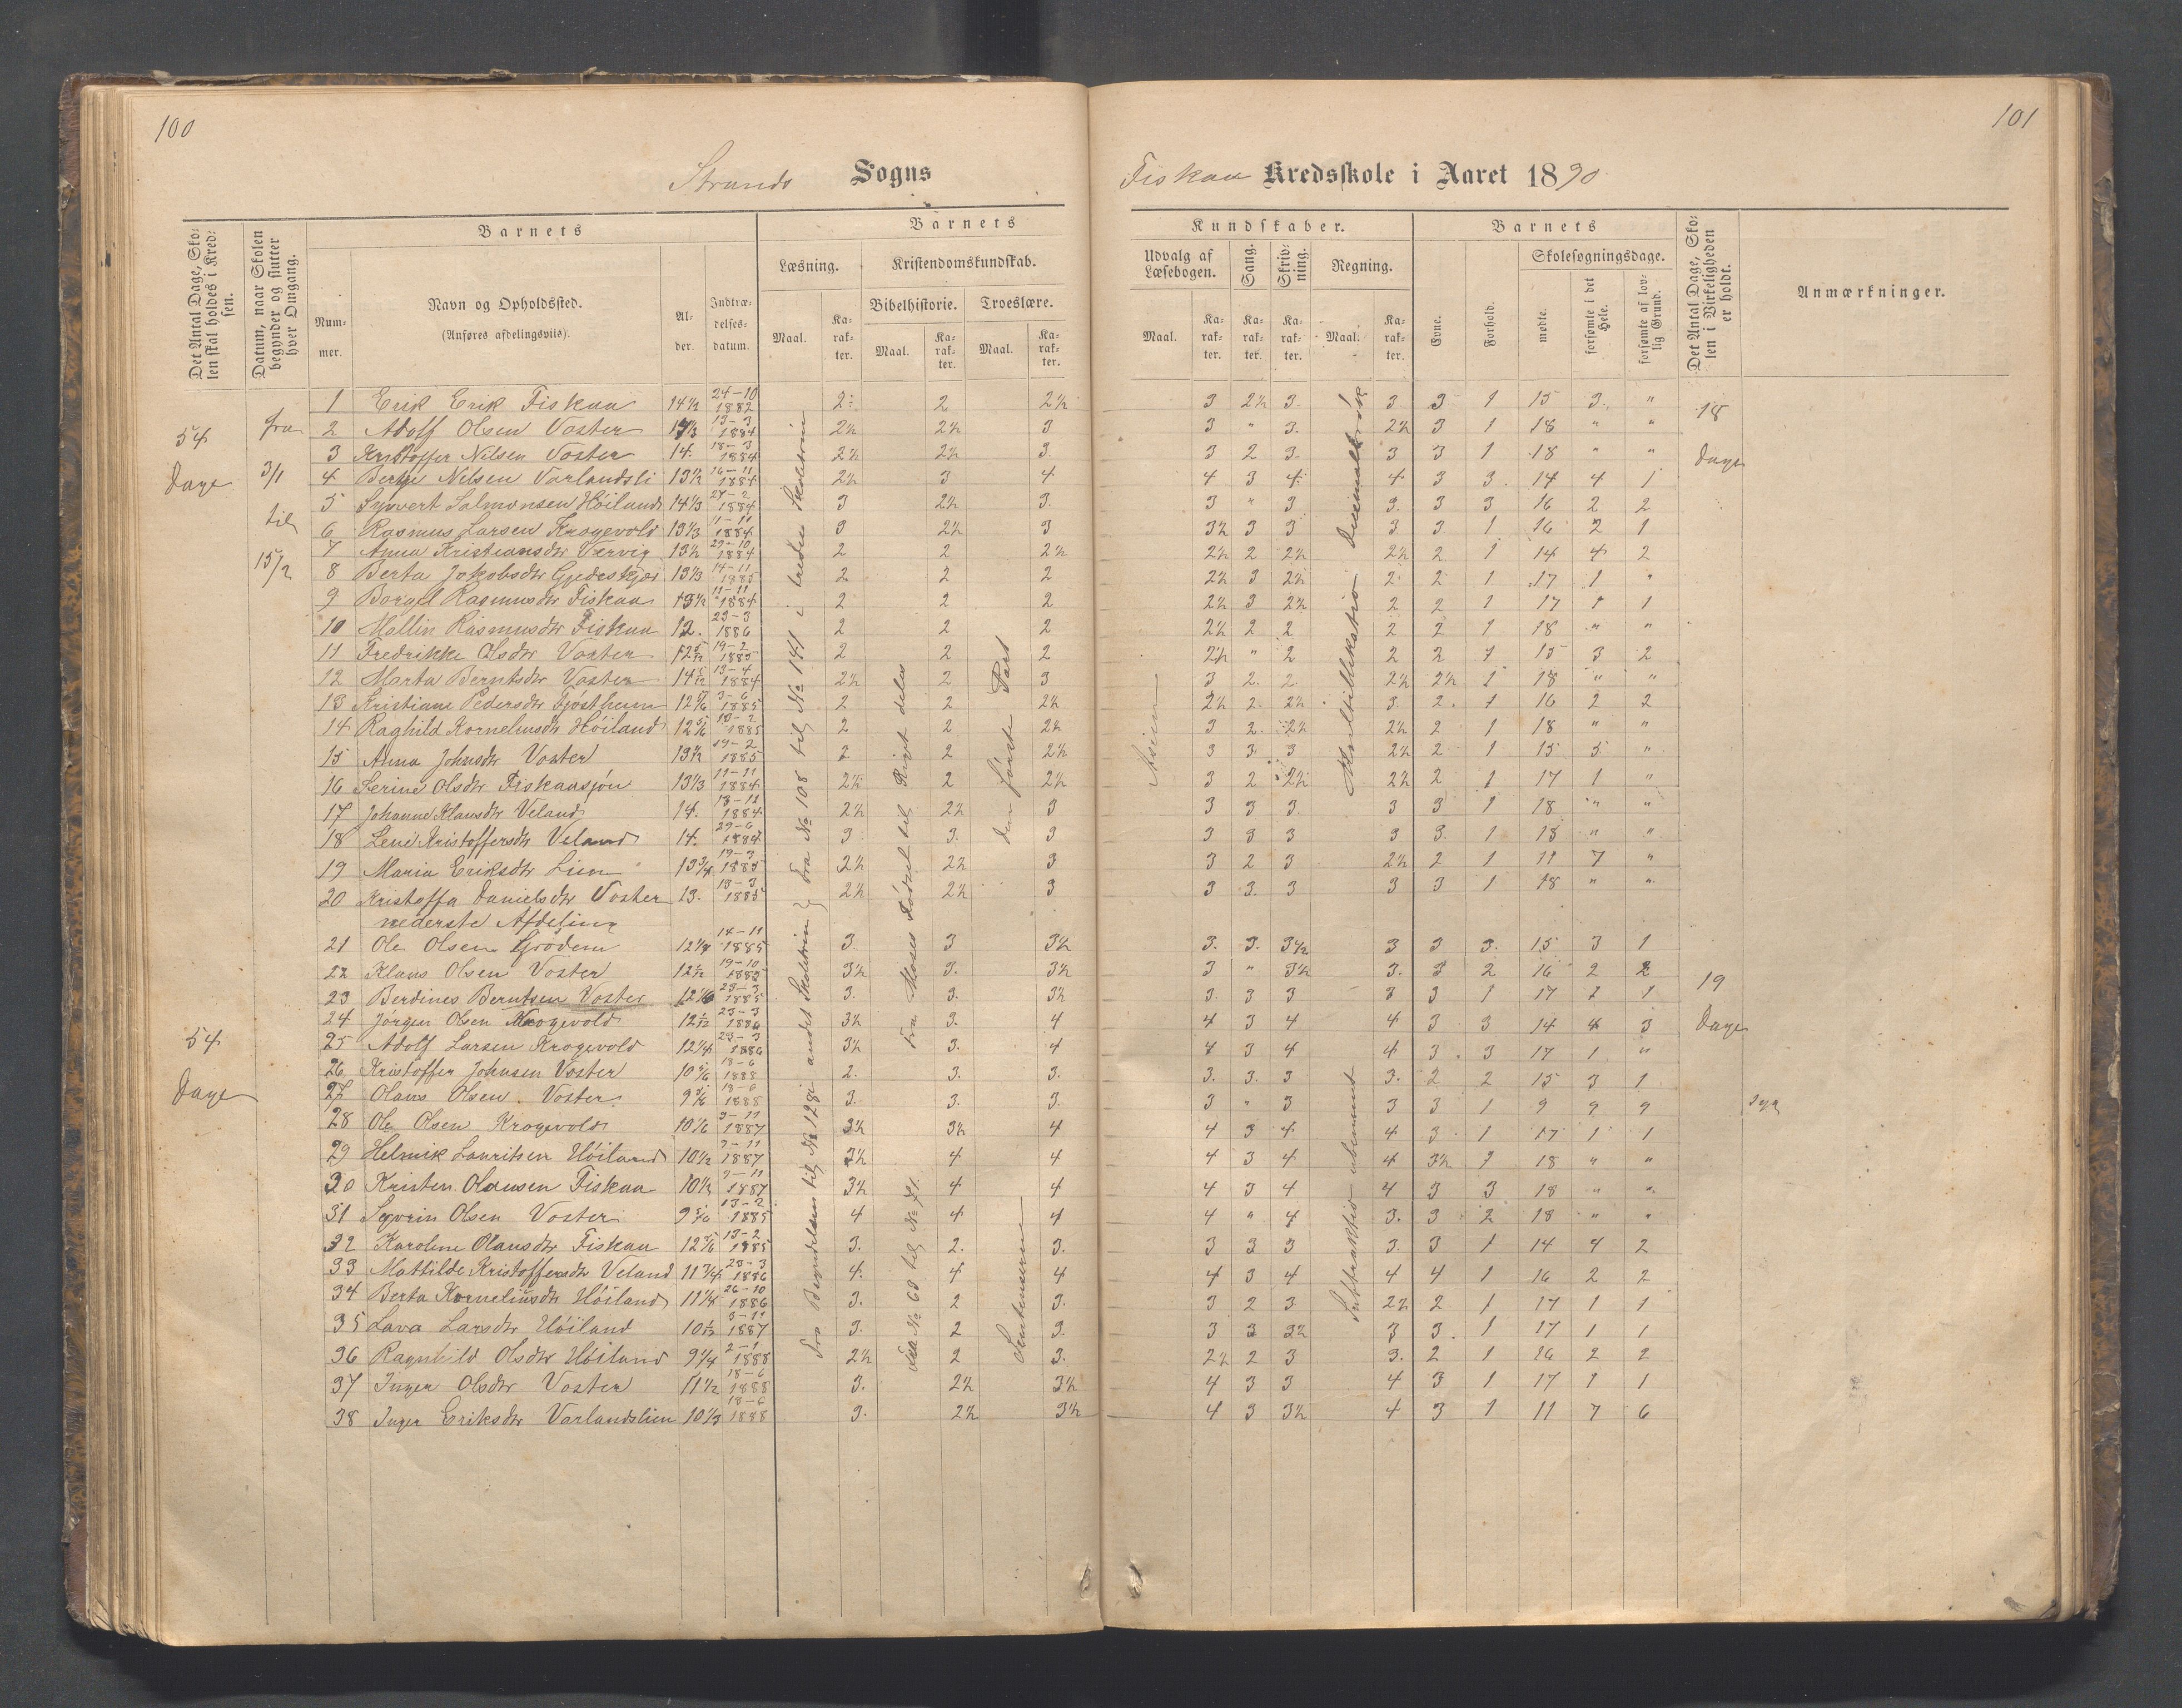 100
101
Strands Sogns
Fiskaa Kredsskole i Aaret 1890
Det Antal Dage, Skolen skal holdes i Kredsen.
Datum, naar Skolen begynder og slutter hver Omgang.
Barnets
Nummer.
Navn og Opholdssted.
(Anføres afdelingsviis).
Alder.
Indtrædelsesdatum.
Barnets
Læsning.
Kristendomskundskab.
Bibelhistorie. Troeslære.
Maal. Karakter. Maal. Karakter. Maal. Karakter.
Kundskaber.
Udvalg af Læsebogen.
Sang.
Skrivning.
Regning.
Maal. Karakter. Karakter. Karakter. Maal. Karakter.
Barnets
Evne.
Forhold.
Skolesøgningsdage.
mødte.
forsømte i det Hele.
forsømte af lovlig Grund.
Det Antal Dage, Skolen i Virkeligheden er holdt.
Anmærkninger.
54 Dage
fra 3/1 til 15/2
18 Dage
1 Erik Erik Fiskaa 14½ 24-10 1882 2 2 2½ 3 2½ 3 3 3 1 15 3 "
2 Adolf Olsen Voster 13-3 1884 2½ 2½ 3 3 " 3 2½ 3 1 18 " "
3 Kristoffer Nilsen Voster 14. 18-3 1884 2½ 2½ 3 3 2 3 3 3 1 18 " "
4 Berge Nelsen Varlandsli 13½ 16-11 1884 2½ 3 4 4 3 4 4 3 3 14 4 1
5 Syvert Salmonsen Høiland 14⅓ 27-2 1884 3 2½ 3 3 " 3 3 3 3 16 2 2
6 Rasmus Larsen Krogevold 13⅓ 11-11 1884 3 2½ 3 3½ 3 3 3 3 1 16 2 1
7 Anna Kristiansdtr Tærvig 13½ 29-10 1884 2 2 2½ 2½ 2 2½ 2½ 2 1 14 4 2
8 Berta Jakobsdtr Gjedeskjær 13⅓ 14-11 1885 2 2 2 2½ 3 2½ 2 2 1 17 1 "
9 Borgel Rasmusdtr Fiskaa 13½ 11-11 1884 2 2 2 2½ 3 2½ 2 2 1 17 1 1
10 Mallin Rasmusdtr Fiskaa 12. 23-3 1886 2 2 2 2½ 2 2 2 2 1 18 " "
11 Fredrikke Olsdtr Voster 19-2 1885 2 2 2 2½ " 2 2 2 1 15 3 2
12 Marta Berntsdtr Voster 13-4 1884 2½ 2 3 3 2 2 2½ 2½ 1 18 " "
13 Kristiane Pedersdtr Tjøstheim 12 3-6 1885 2 2 2½ 2½ 2 2½ 3 2 1 16 2 2
14 Raghild Korneliusdtr Høiland 12 13-2 1885 2 2 2½ 3 2 2½ 2½ 2 1 18 " "
15 Anna Johnsdtr Voster 19-2 1885 2 2 2½ 3 3 3 2½ 2 1 15 5 "
16 Serine Olsdtr Fiskaasjøn 13⅓ 11-11 1884 2½ 2 2½ 3 2 2½ 2½ 2 1 17 1 "
17 Johanne Klausdtr Veland 14. 18-11 1884 2½ 2½ 3 3 3 3 3 3 1 18 " "
18 Lene Kristoffersdtr Veland 14. 29-6 1884 3 3 3 3 3 3 3 3 1 18 " "
19 Maria Eriksdtr Lien 13¾ 19-3 1885 2½ 2½ 3 3 2 3 2½ 2 1 11 7 "
20 Kristoffa Danielsdtr Voster 13. 13-3 1885 2½ 2½ 3 3 3 3 3 3 1 18 " "
nederste Afdeling
54 Dage
19 Dage
21 Ole Olsen Grødem 14-11 1885 3 3 3½ 3 3 3½ 3 3 3 15 3 1
22 Klaus Olsen Voster 19-10 3½ 3 3½ 3 " 3½ 3 3 2 16 2 2
23 Berdines Berntsen Voster 12 23-3 1885 3 3 3½ 3 3 3 3 3 1 17 2 1
24 Jørgen Olsen Krogevold 23-3 1886 3½ 3 4 4 3 4 4 3 3 14 4 3
25 Adolf Larsen Krogevold 12¼ 23-3 1886 3½ 3 4 4 3 4 4 3 3 17 1 "
26 Kristoffer Johnsen Voster 10 18-6 1888 2 3 3 3 3 3 3 2 2 15 3 1
27 Olaus Olsen Voster 9 18-6 1888 3 3 3 3 " 3 3 3 1 9 9 9 syg
28 Ole Olsen Krogevold 10 3-11 1887 3½ 3½ 4 4 3 4 4 3 1 17 1 1
29 Helmik Lauritsen Høiland 10½ 3-11 1887 3½ 4 4 4 3 4 4 3½ 1 18 " "
30 Kristen Olausen Fiskaa 10½ 3-11 1887 3½ 4 4 4 3 4 4 3 3 18 " "
31 Severin Olsen Voster 9 13-2 1885 4 4 4 4 " 4 3 3 2 18 " "
32 Karoline Olausdtr Fiskaa 12 13-2 1885 3 2 3 3 3 3 3 3 1 14 4 2
33 Mattilde Kristoffersdtr Veland 11¾ 23-3 1886 4 4 4 4 3 4 4 4 1 16 2 2
34 Berta Korneliusdtr Høiland 11¼ 26-10 1886 3 2 3 3 2 3 2½ 2 1 17 1 1
35 Lava Larsdtr Høiland 3-11 1887 3 2 3 3 3 3½ 3 3 1 17 1 1
36 Ragnhild Olsdtr Høiland 9¼ 2-1 1888 2½ 2 3 2½ 2 3 3 2 1 16 2 2
37 Inger Olsdtr Voster 11½ 18-6 1888 3 2½ 3½ 4 3 3 4 3 1 17 1 1
38 Inger Eriksdtr Varlandslien 10⅓ 18-6 1888 3 2½ 3½ 4 3 3½ 4 3 1 11 7 6
Fra No 108 til No 141 i tredie Skoletrin
Fra Begyndelsen til No 128 i andet Skoletrin
Fra Moses Fødsel til Riget deles
Fra No 68 til No 71.
den første Part
Sentenserne
Asien
Multiplikation Decimalbrøk
Subtraktion ubenævnt